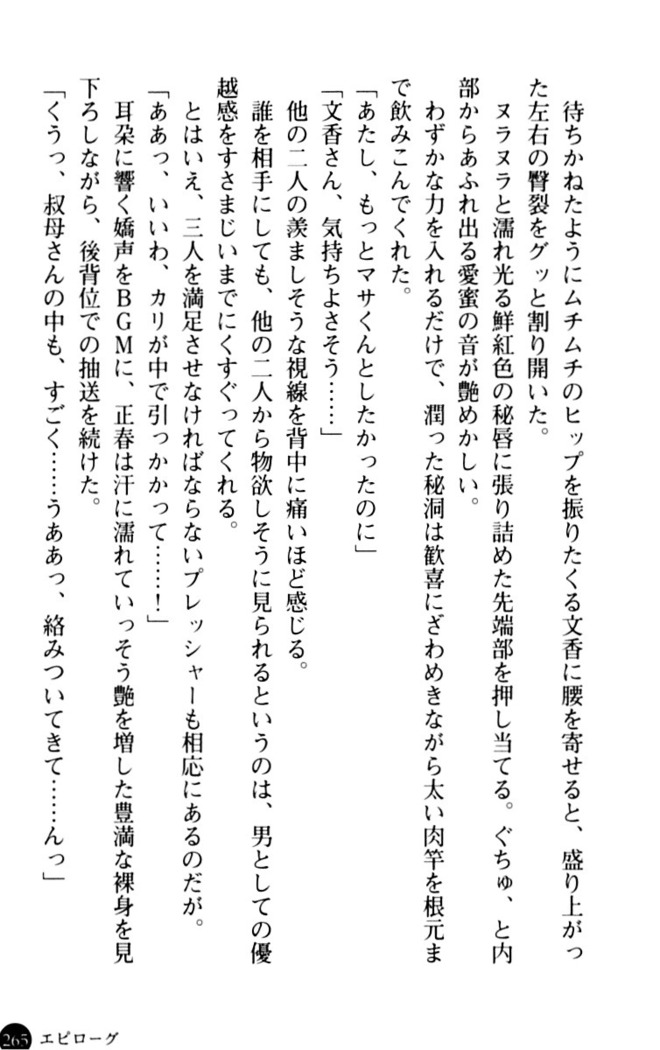 待ちかねたようにムチムチのヒップを振りたくる文香に腰を寄せると、盛り上がっ
た左右の臀裂をグッと割り開いた。
ヌラヌラと濡れ光る鮮紅色の秘唇に張り詰めた先端部を押し当てる。ぐちゅ、と内
部からあふれ出る愛蜜の音が艶めかしい。
わずかな力を入れるだけで、潤った秘洞は歓喜にざわめきながら太い肉竿を根元ま
で飲みこんでくれた。
「あたし、もっとマサくんとしたかったのに」
「文香さん、気持ちよさそう……」
他の二人の羨ましそうな視線を背中に痛いほど感じる。
誰を相手にしても、他の二人から物欲しそうに見られるというのは、男としての優
越感をすさまじいまでにくすぐってくれる。
とはいえ、三人を満足させなければならないプレッシャーも相応にあるのだが。
「ああっ、いいわ、カリが中で引っかかって……！」
耳朶に響く嬌声をＢＧＭに、正春は汗に濡れていっそう艶を増した豊満な裸身を見
下ろしながら、後背位での抽送を続けた。
「くうっ、叔母さんの中も、すごく……うああっ、絡みついてきて……んっ」
265 エピローグ